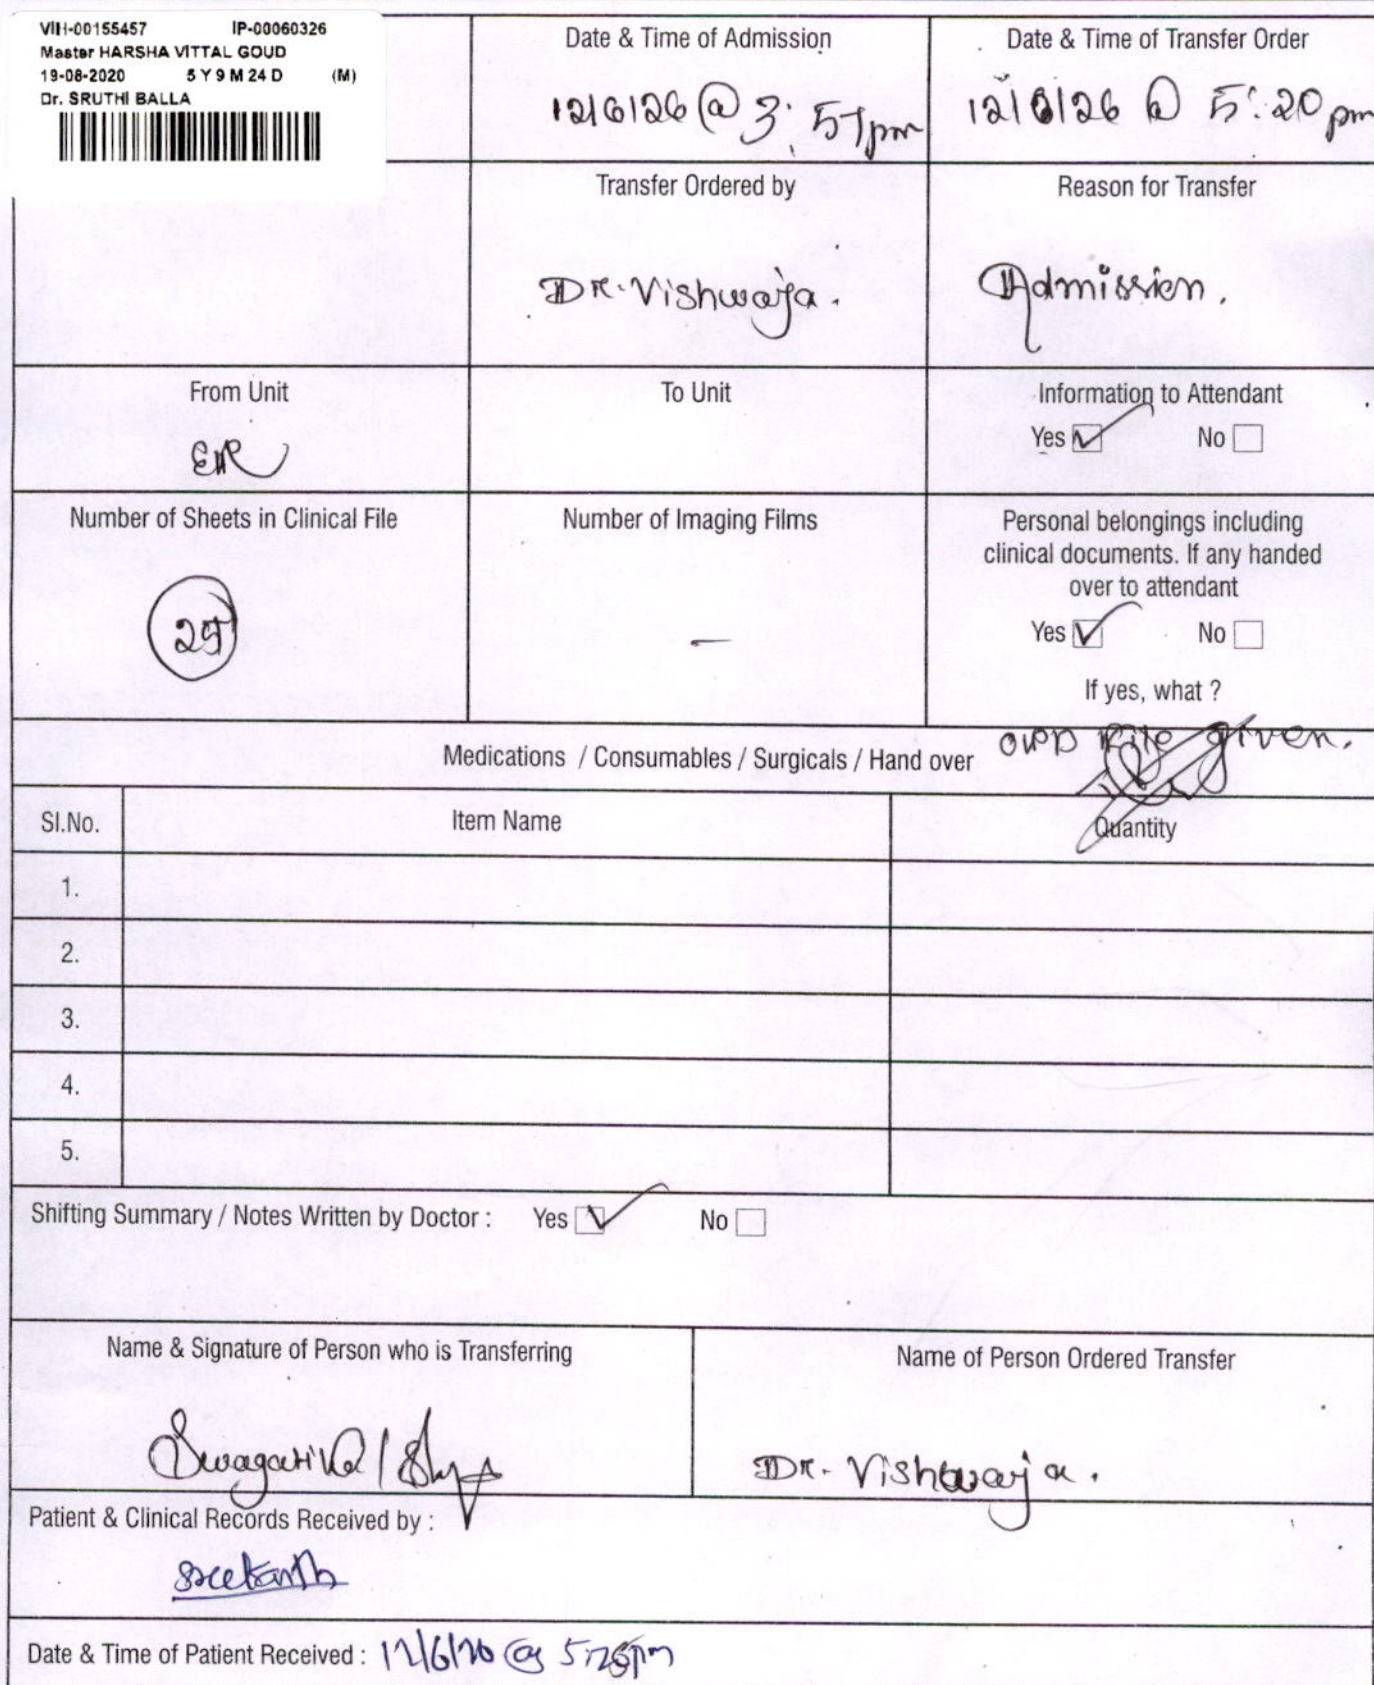 VIH-00155457 IP-00060326
Master HARSHA VITTAL GOUD
19-08-2020 5 Y 9 M 24 D (M)
Dr. SRUTHI BALLA
Date & Time of Admission
12/6/26 @ 3:57pm
Date & Time of Transfer Order
12/6/26 @ 5:20 pm
Transfer Ordered by
Dr. Vishwaja.
Reason for Transfer
Admission.
From Unit
ER
To Unit
Information to Attendant
Yes No
Number of Sheets in Clinical File
25
Number of Imaging Films
—
Personal belongings including
clinical documents. If any handed
over to attendant
Yes No
If yes, what ?
OPD File given.
Medications / Consumables / Surgicals / Hand over
Sl.No. Item Name Quantity
1.
2.
3.
4.
5.
Shifting Summary / Notes Written by Doctor : Yes No
Name & Signature of Person who is Transferring
Swagatika /
Name of Person Ordered Transfer
Dr. Vishwaja.
Patient & Clinical Records Received by :
Sreekanth
Date & Time of Patient Received : 12/6/26 @ 5:25pm